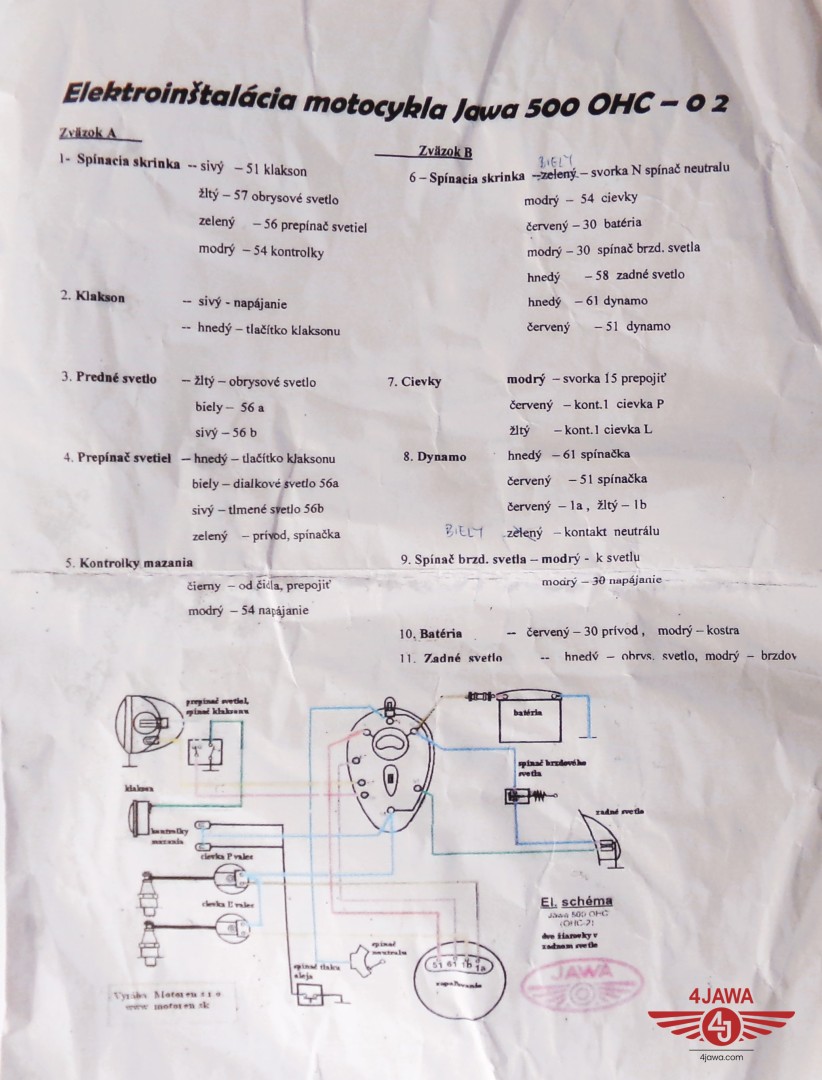 Elektroinštalácia motocykla Jawa 500 OHC – o 2
Zväzok A
1- Spínacia skrinka -- sivý – 51 klakson
žltý – 57 obrysové svetlo
zelený – 56 prepínač svetiel
modrý – 54 kontrolky
2. Klakson -- sivý - napájanie
-- hnedý – tlačítko klaksonu
3. Predné svetlo – žltý – obrysové svetlo
biely – 56 a
sivý – 56 b
4. Prepínač svetiel – hnedý – tlačítko klaksonu
biely – dialkové svetlo 56a
sivý – tlmené svetlo 56b
zelený – prívod, spínačka
5. Kontrolky mazania
čierny – od čidla, prepojiť
modrý – 54 napájanie
Zväzok B
BIELY
6 – Spínacia skrinka – zelený – svorka N spínač neutralu
modrý – 54 cievky
červený – 30 batéria
modrý – 30 spínač brzd. svetla
hnedý – 58 zadné svetlo
hnedý – 61 dynamo
červený – 51 dynamo
7. Cievky modrý – svorka 15 prepojiť
červený – kont.1 cievka P
žltý – kont.1 cievka L
8. Dynamo hnedý – 61 spínačka
červený – 51 spínačka
červený – 1a , žltý – 1b
BIELY zelený – kontakt neutrálu
9. Spínač brzd. svetla – modrý - k svetlu
modrý – 30 napájanie
10. Batéria -- červený – 30 prívod , modrý – kostra
11. Zadné svetlo -- hnedý – obrys. svetlo, modrý – brzdov
prepínač svetiel,
spínač klaksonu
batéria
spínač brzdového
svetla
klakson
zadné svetlo
kontrolky
mazania
cievka P valec
cievka Ľ valec
El. schéma
Jawa 500 OHC
(OHC-2)
dve žiarovky v
zadnom svetle
spínač
neutralu
spínač tlaku
oleja
51 61 1b 1a
zapaľovanie
JAWA
Vyrába Motoren s.r.o
www motoren.sk
4JAWA
4J
4jawa.com